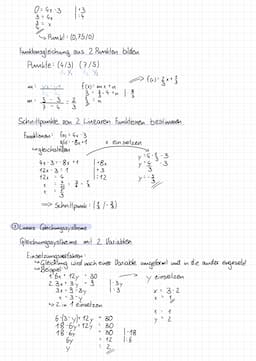 0 = 4x - 3 | +3
3 = 4x | :4
3/4 = x
↳ Punkt: (0,75/0)
Funktionsgleichung aus 2 Punkten bilden
Punkte: (4/3) (7/5)
m = f(x) = mx + n
m = 5 - 3 / 7 - 4 = 2/3
Schnittpunkte von 2 Linearen Funktionen bestimmen
Funktionen: f(x) = 4x - 3
g(x) = -8x + 1
↳ gleichstellen
x einsetzen
4x - 3 = -8x + 1 | +8x
12x - 3 = 1 | +3
12x = 4 | :12
⇒ Schnittpunkt:
Lineare Gleichungssysteme
Gleichungssysteme mit 2 Variablen
Einsetzungsverfahren:
↳ Gleichung wird nach einer Variable umgeformt und in die andere eingesetzt
↳ Beispiel
1. 6x + 12y = 30
2. 3x + 3y = 9 | -3y
3x = 9 - 3y | :3
x = 3 - y
↳ 2 in 1 einsetzen
6·(3-y) + 12y = 30
18 - 6y + 12y = 30
18 + 6y = 30 | -18
6y = 12 | :6
y = 2
y einsetzen
x = 3 - 2
x = 1
x = 1
y = 2